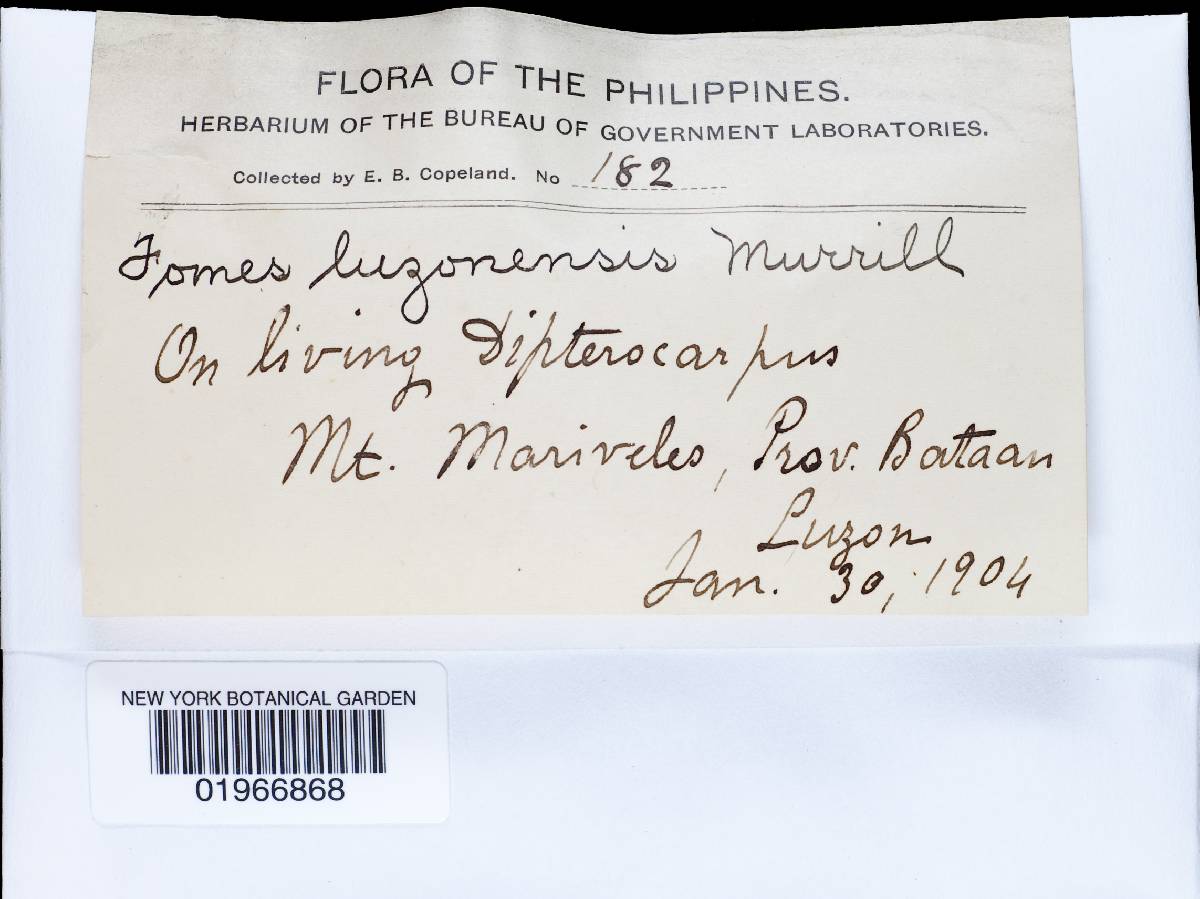 FLORA OF THE PHILIPPINES.
HERBARIUM OF THE BUREAU OF GOVERNMENT LABORATORIES.
Collected by E. B. Copeland. No 182
Fomes luzonensis Murrill
On living Dipterocarpus
Mt. Mariveles, Prov. Bataan
Luzon
Jan. 30, 1904
NEW YORK BOTANICAL GARDEN
01966868